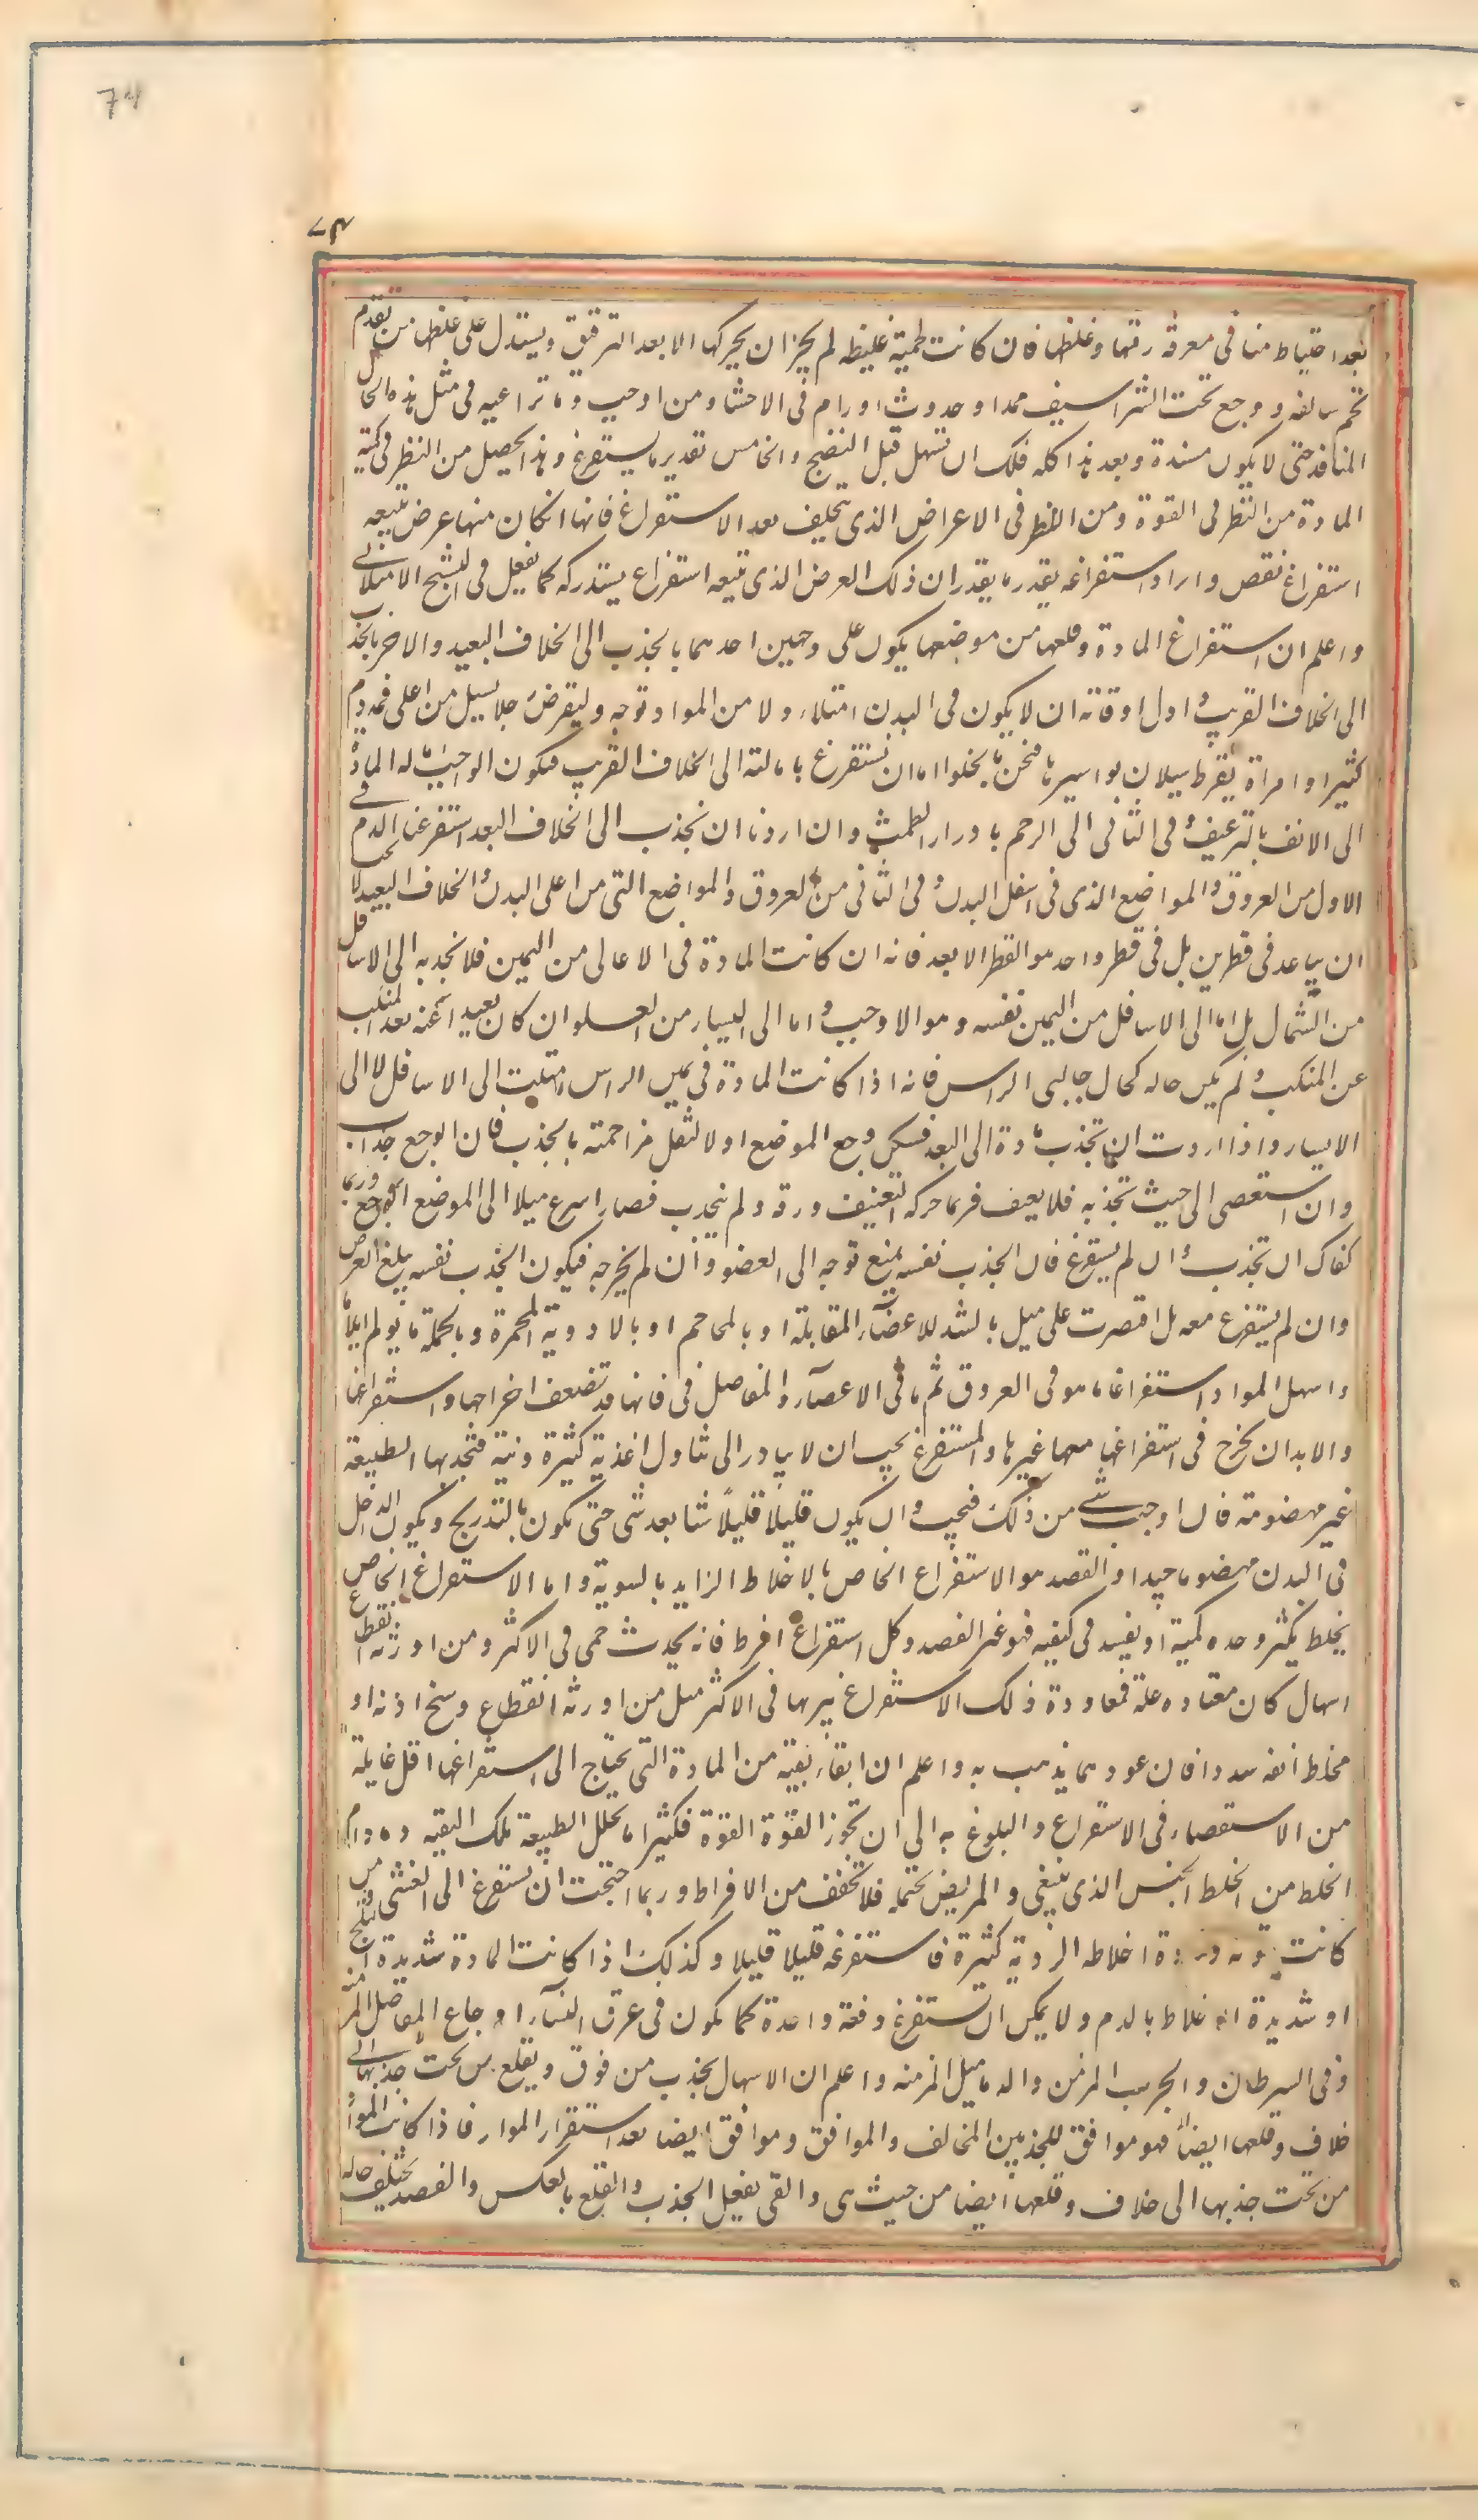 74
٧٤
بعد احتياط منا فى معرفة رقتها وغلظها فان كانت لحمية غليظه لم يجز ان يحركها الا بعد الترقيق ويستدل على غلظها من تقدم
تخم سالفه ووجع تحت الشراسيف ممدا وحدوث اورام فى الاحشا ومن اوجب وما تراعيه فى مثل هذه الحال
المنافذ حتى لا يكون مسندة وبعد هذا كله فلك ان تسهل قبل النضج والخامس تقدير ما يستفرغ وهذا يحصل من النظر فى كمية
المادة من النظر فى القوة ومن النظر فى الاعراض الذى يتخلف بعد الاستفراغ فانها انكان منها عرض تتبعه
استفراغ نقص واراد استفراغه بقدر ما يقدر ان ذلك العرض الذى تتبعه استفراغ يستدركه كما يفعل فى التشنج الامتلائى
واعلم ان استفراغ المادة وقلعها من موضعها يكون على وجهين احدهما بالجذب الى الخلاف البعيد والاخر بالجذب
الى الخلاف القريب و اول اوقاته ان لا يكون فى البدن امتلاء ولا من المواد توجه وليفرض رجلا يسيل من اعلى فمه دم
كثيرا وامراة يفرط سيلان بواسيرها فنحن ما يخلوا اما ان نستفرغ بامالته الى الخلاف القريب فيكون الواجب امالة المادة
الى الانف بالترعيف و فى الثانى الى الرحم بادرار الطمث وان اردنا ان نجذب الى الخلاف البعد استفرغنا الدم فى
الاول من العروق و المواضع الذى فى اسفل البدن و فى الثانى من العروق والمواضع التى من اعلى البدن و الخلاف البعيد لا يجب
ان يباعد فى قطرين بل فى قطر واحد هو القطر الابعد فانه ان كانت المادة فى الاعالى من اليمين فلا نجذبه الى الاسافل
من الشمال بل اما الى الاسافل من اليمين نفسه وهو الاوجب و اما الى اليسار من العلو ان كان بعيدا عنه بعد المنكب
عن المنكب و لم يكن حاله كحال جانبى الراس فانه اذا كانت المادة فى يمين الراس امتلت الى الاسافل لا الى
الايسار واذا اردت ان تجذب مادة الى البعد فسكن وجع الموضع اولا لتقل مزاحمته بالجذب فان الوجع جذاب
وان استعصى الى حيث تجذبه فلا يعنف فربما حركه التعنيف ورقه ولم ينجذب فصار اسرع ميلا الى الموضع الوجع وربما
كفاك ان تجذب و ان لم يستفرغ فان الجذب نفسه يمنع توجه الى العضو وان لم يخرجه فيكون الجذب نفسه يبلغ الغرض
وان لم يستفرغ معه بل اقتصرت على ميل بالشد للاعضاء المقابلة او بالمحاحم او بالادوية المحمرة وبالجملة ما يولم ايلاما
واسهل المواد استفراغا ما هو فى العروق ثم ما فى الاعضاء والمفاصل فى فانها قد تضعف اخراجها واستفراغها
والابدان يخرج فى استفراغها معها غيرها والمستفرغ يجب ان لا يبادر الى تناول اغذية كثيرة ونية فتجذبها الطبيعة
غير مهضومة فان اوجب شى من ذلك فيجب و ان يكون قليلًا قليلًا شيا بعد شى حتى تكون بالتدريج ويكون الداخل
فى البدن مهضوما جيدا والفصد هو الاستفراغ الخاص بالاخلاط الزايد بالسوية واما الاستفراغ الخاص
بخلط يكثر وحده كمية او يفسد فى كيفيه فهو غير الفصد وكل استفراغ افرط فانه يحدث حمى فى الاكثر ومن اورثه انقطاع
اسهال كان معتاده علة فمعاودة ذلك الاستفراغ يبرها فى الاكثر مثل من اورثه انقطاع وسخ اذنه او
مخاط انفه سددا فان عودهما يذهب به واعلم ان ابقاء بقية من المادة التى يحتاج الى استفراغها اقل غايلة
من الاستقصاء فى الاستفراغ والبلوغ به الى ان تجوز القوة القوة فكثيرا ما تحلل الطبيعة تلك البقيه وما دام
الخلط من الخلط الجنس الذى ينبغى والمريض يحتمله فلا تخفف من الافراط وربما احتجت ان تستفرغ الى الغشى من
كانت قوته ومادة اخلاطه الردية كثيرة فاستفرغه قليلا قليلا وكذلك اذا كانت المادة شديدة
او شديدة الاختلاط بالدم ولا يمكن ان تستفرغ دفعة واحدة كما يكون فى عرق النسا او اوجاع المفاصل المزمنه
وفى السرطان والجرب المزمن والدماميل المزمنه واعلم ان الاسهال يجذب من فوق ويقلع من تحت جذبها الى
خلاف وقلعها ايضا فهو موافق للجذبين المخالف والموافق وموافق ايضا بعد استقرار المواد فاذا كانت المواد
من تحت جذبها الى خلاف وقلعها ايضا من حيث هى والقى يفعل الجذب والقلع بالعكس والفصد يختلف حاله